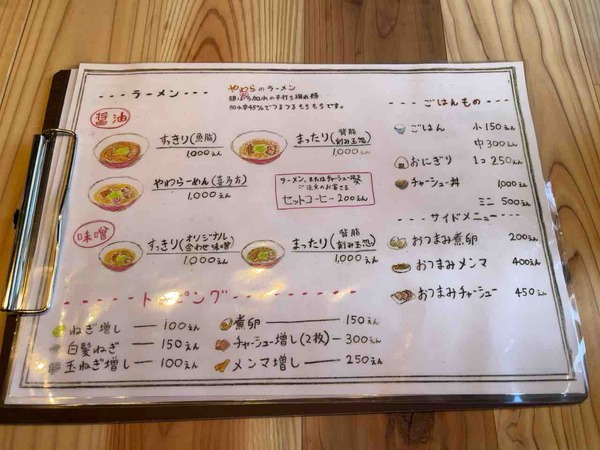 ラーメン
やわらのラーメン
加水率45%でつるつるもちもちです。
醤油
すっきり(魚脂) 1,000えん
まったり(背脂 刻み玉葱) 1,000えん
やわらーめん(喜多方) 1,000えん
ラーメン、またはチャーシュー丼
ご注文のお客さま
セットコーヒー 200えん
味噌
すっきり(オリジナル 合わせ味噌) 1,000えん
まったり(背脂 刻み玉葱) 1,000えん
トッピング
ねぎ増し 100えん
白髪ねぎ 150えん
玉ねぎ増し 100えん
煮卵 150えん
チャーシュー増し(2枚) 300えん
メンマ増し 250えん
ごはんもの
ごはん 小 150えん
中 300えん
おにぎり 1コ 250えん
チャーシュー丼 1,000えん
ミニ 500えん
サイドメニュー
おつまみ煮卵 200えん
おつまみメンマ 400えん
おつまみチャーシュー 450えん